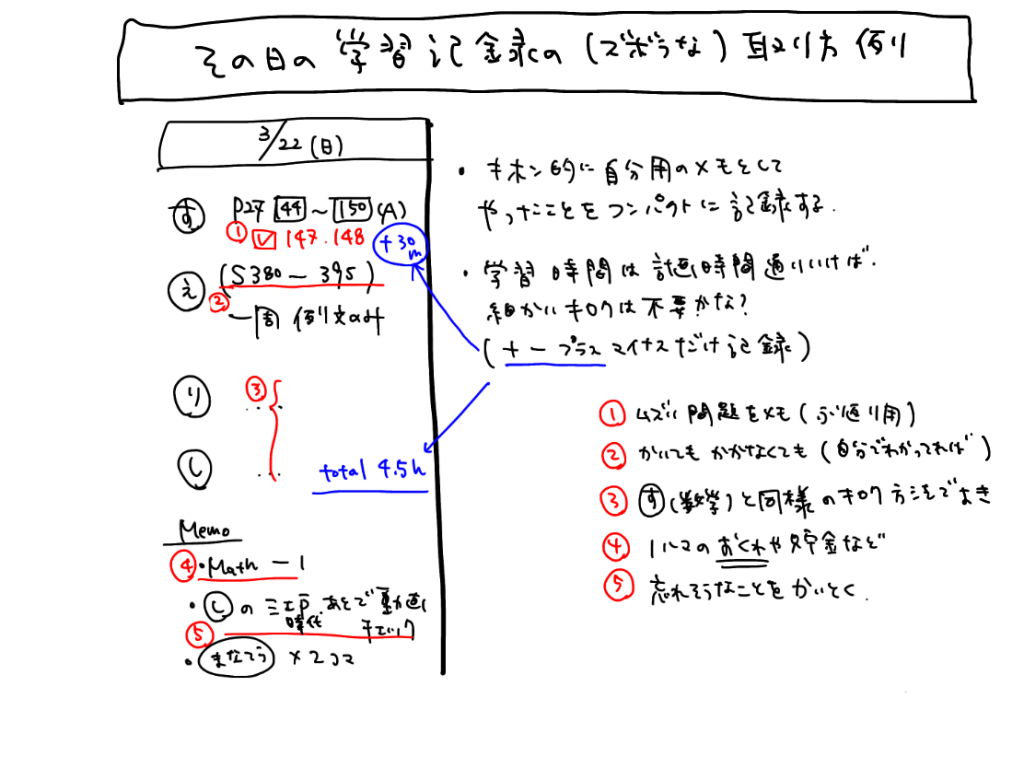 その日の学習記録の(ズボラな)取り方例
3/22(日)
す P27 144 ~ 150 (A)
① ✓ 147.148
+30m
え (S380 ー 395)
② 一周 例文のみ
り ③ …
し …
total 4.5h
Memo
④ ・Math −1
・しの 江戸時代 あとで動画チェック
⑤
・まなてら ×2コマ
・キホン的に自分用のメモとして
やったことをコンパクトに記録する.
・学習時間は計画時間通りいけば.
細かいキロクは不要かな?
(+ − プラスマイナスだけ記録)
① ムズい問題をメモ(ふり返り用)
② かいてもかかなくても(自分でわかってれば)
③ す(数学)と同様のキロク方法でOK
④ ノルマのおくれや貯金など
⑤ 忘れそうなことをかいとく.